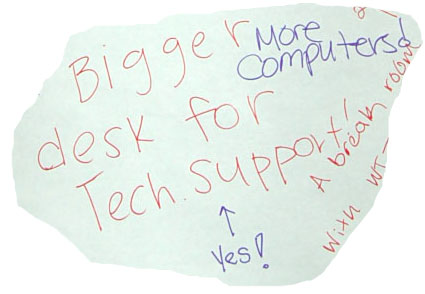 Bigger
desk for
Tech. support!
More
Computers!
A break room
with
↑
Yes!